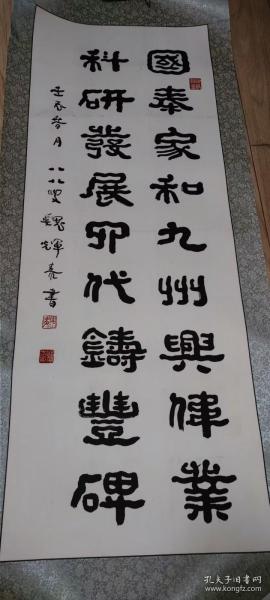 國泰家和九州興偉業
科研發展四代鑄豐碑
壬辰春月 八八叟 魏輝彥書
孔夫子旧书网